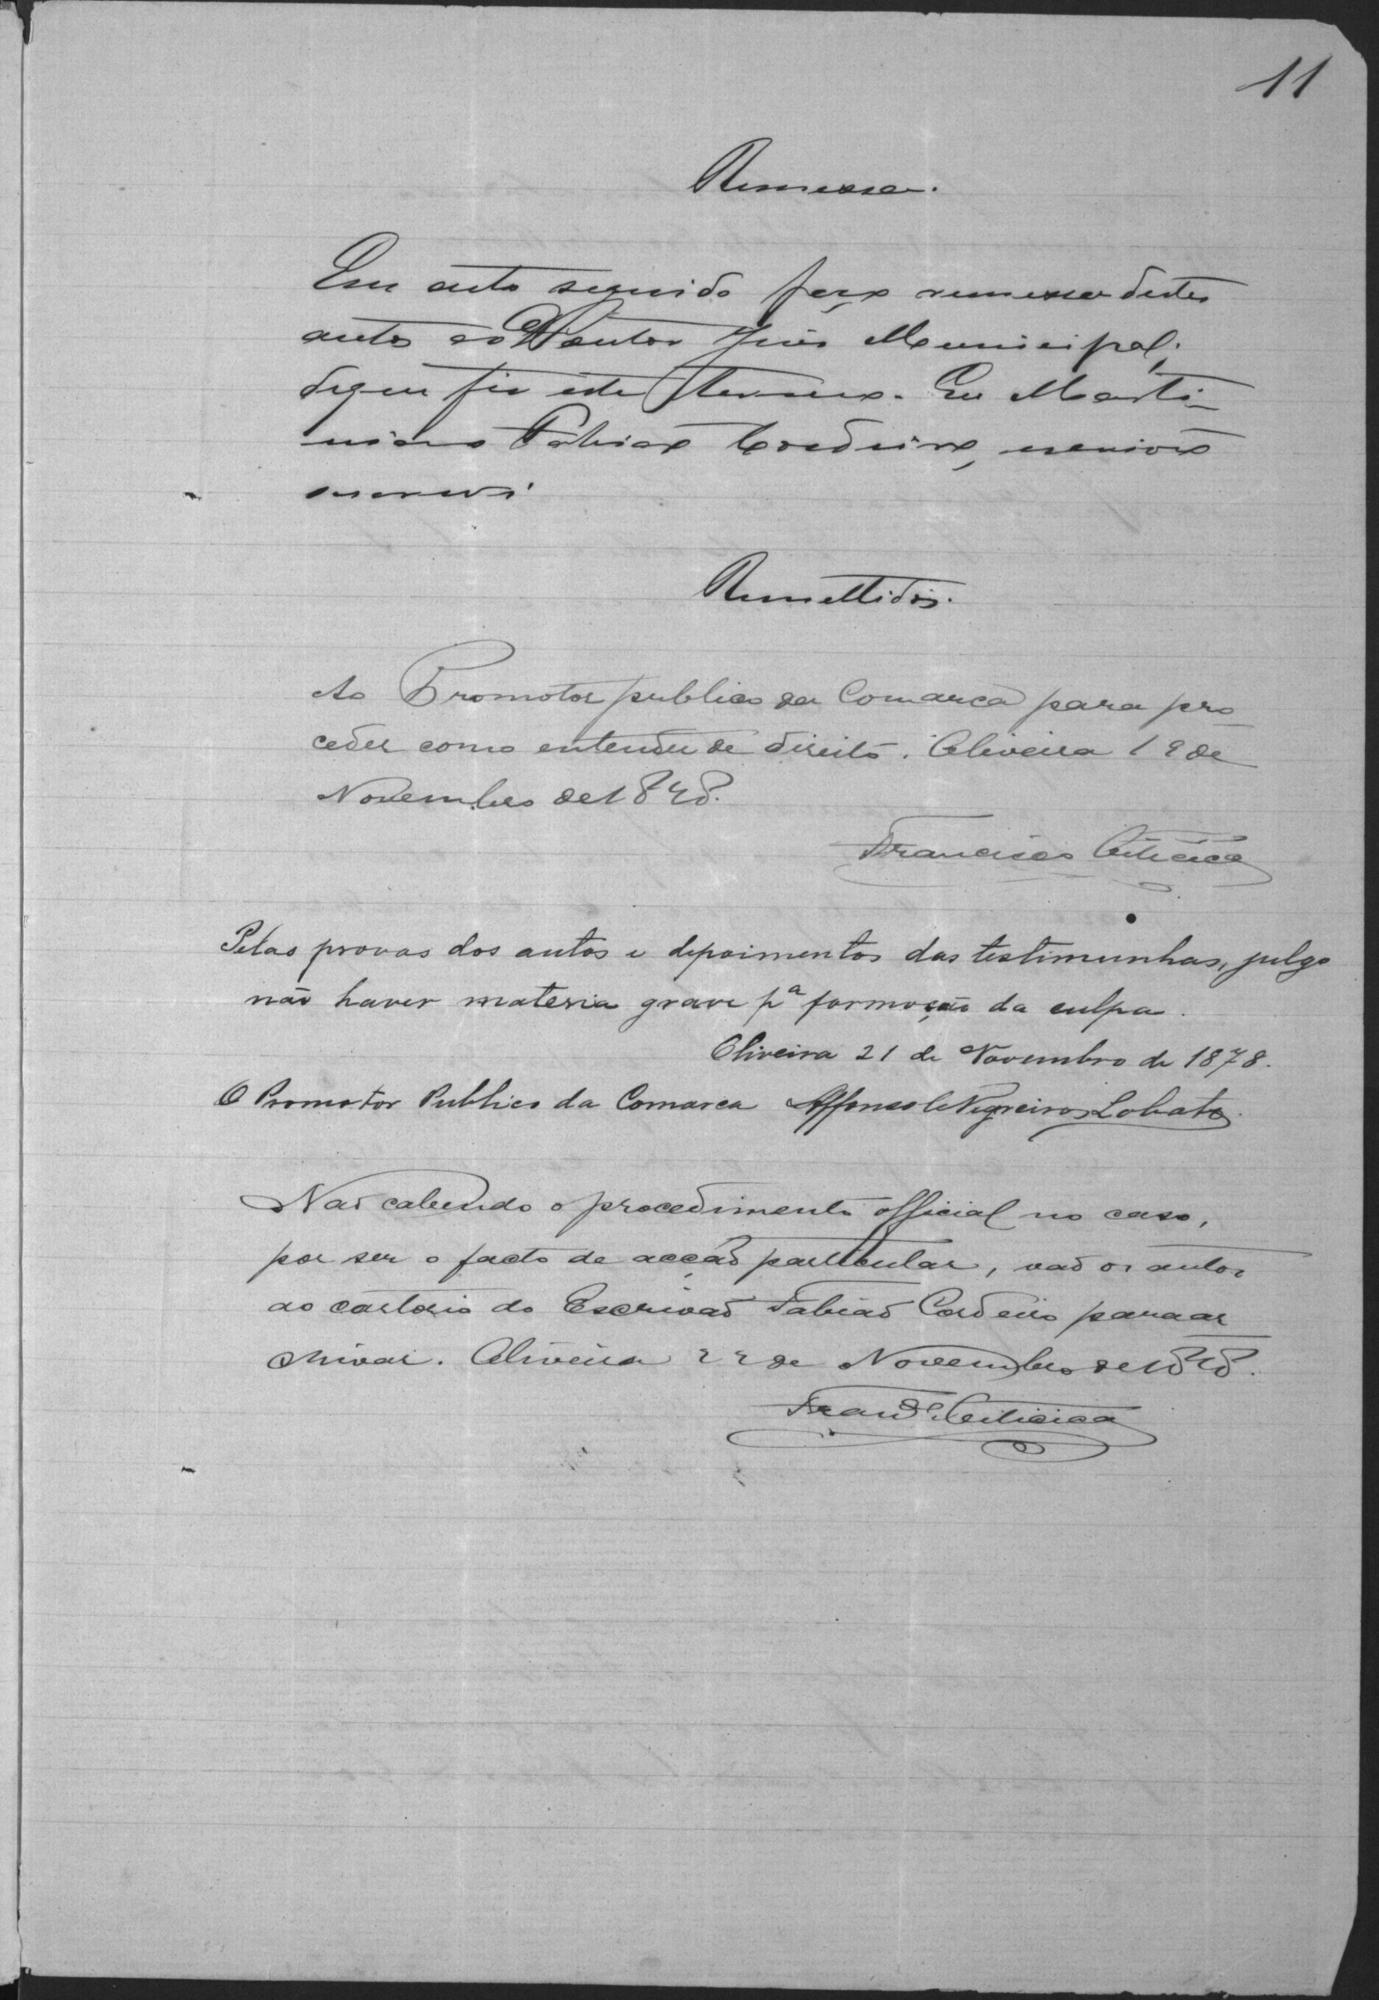 11
Remessa.
Em acto seguido faço remessa destes
autos ao Doutor Juis Municipal;
dequi fis este termo. Eu Marti-
niano Fabiaõ Cordeiro, escrivaõ
escrevi
Remettidos.
Ao Promotor publico da Comarca para pro-
ceder como entender de direito. Oliveira 19 de
Novembro de 1878.
Francisco
Pelas provas dos autos e depoimentos das testimunhas, julgo
não haver materia grave pª formação da culpa.
Oliveira 21 de Novembro de 1878.
O Promotor Publico da Comarca Affonso Negreiros Lobato
Naõ cabendo o procedimento official no caso,
por ser o facto de acçaõ particular, vaõ os autos
ao cartorio do Escrivaõ Fabiaõ Cordeiro para ar
chivar. Oliveira 22 de Novembro de 1878.